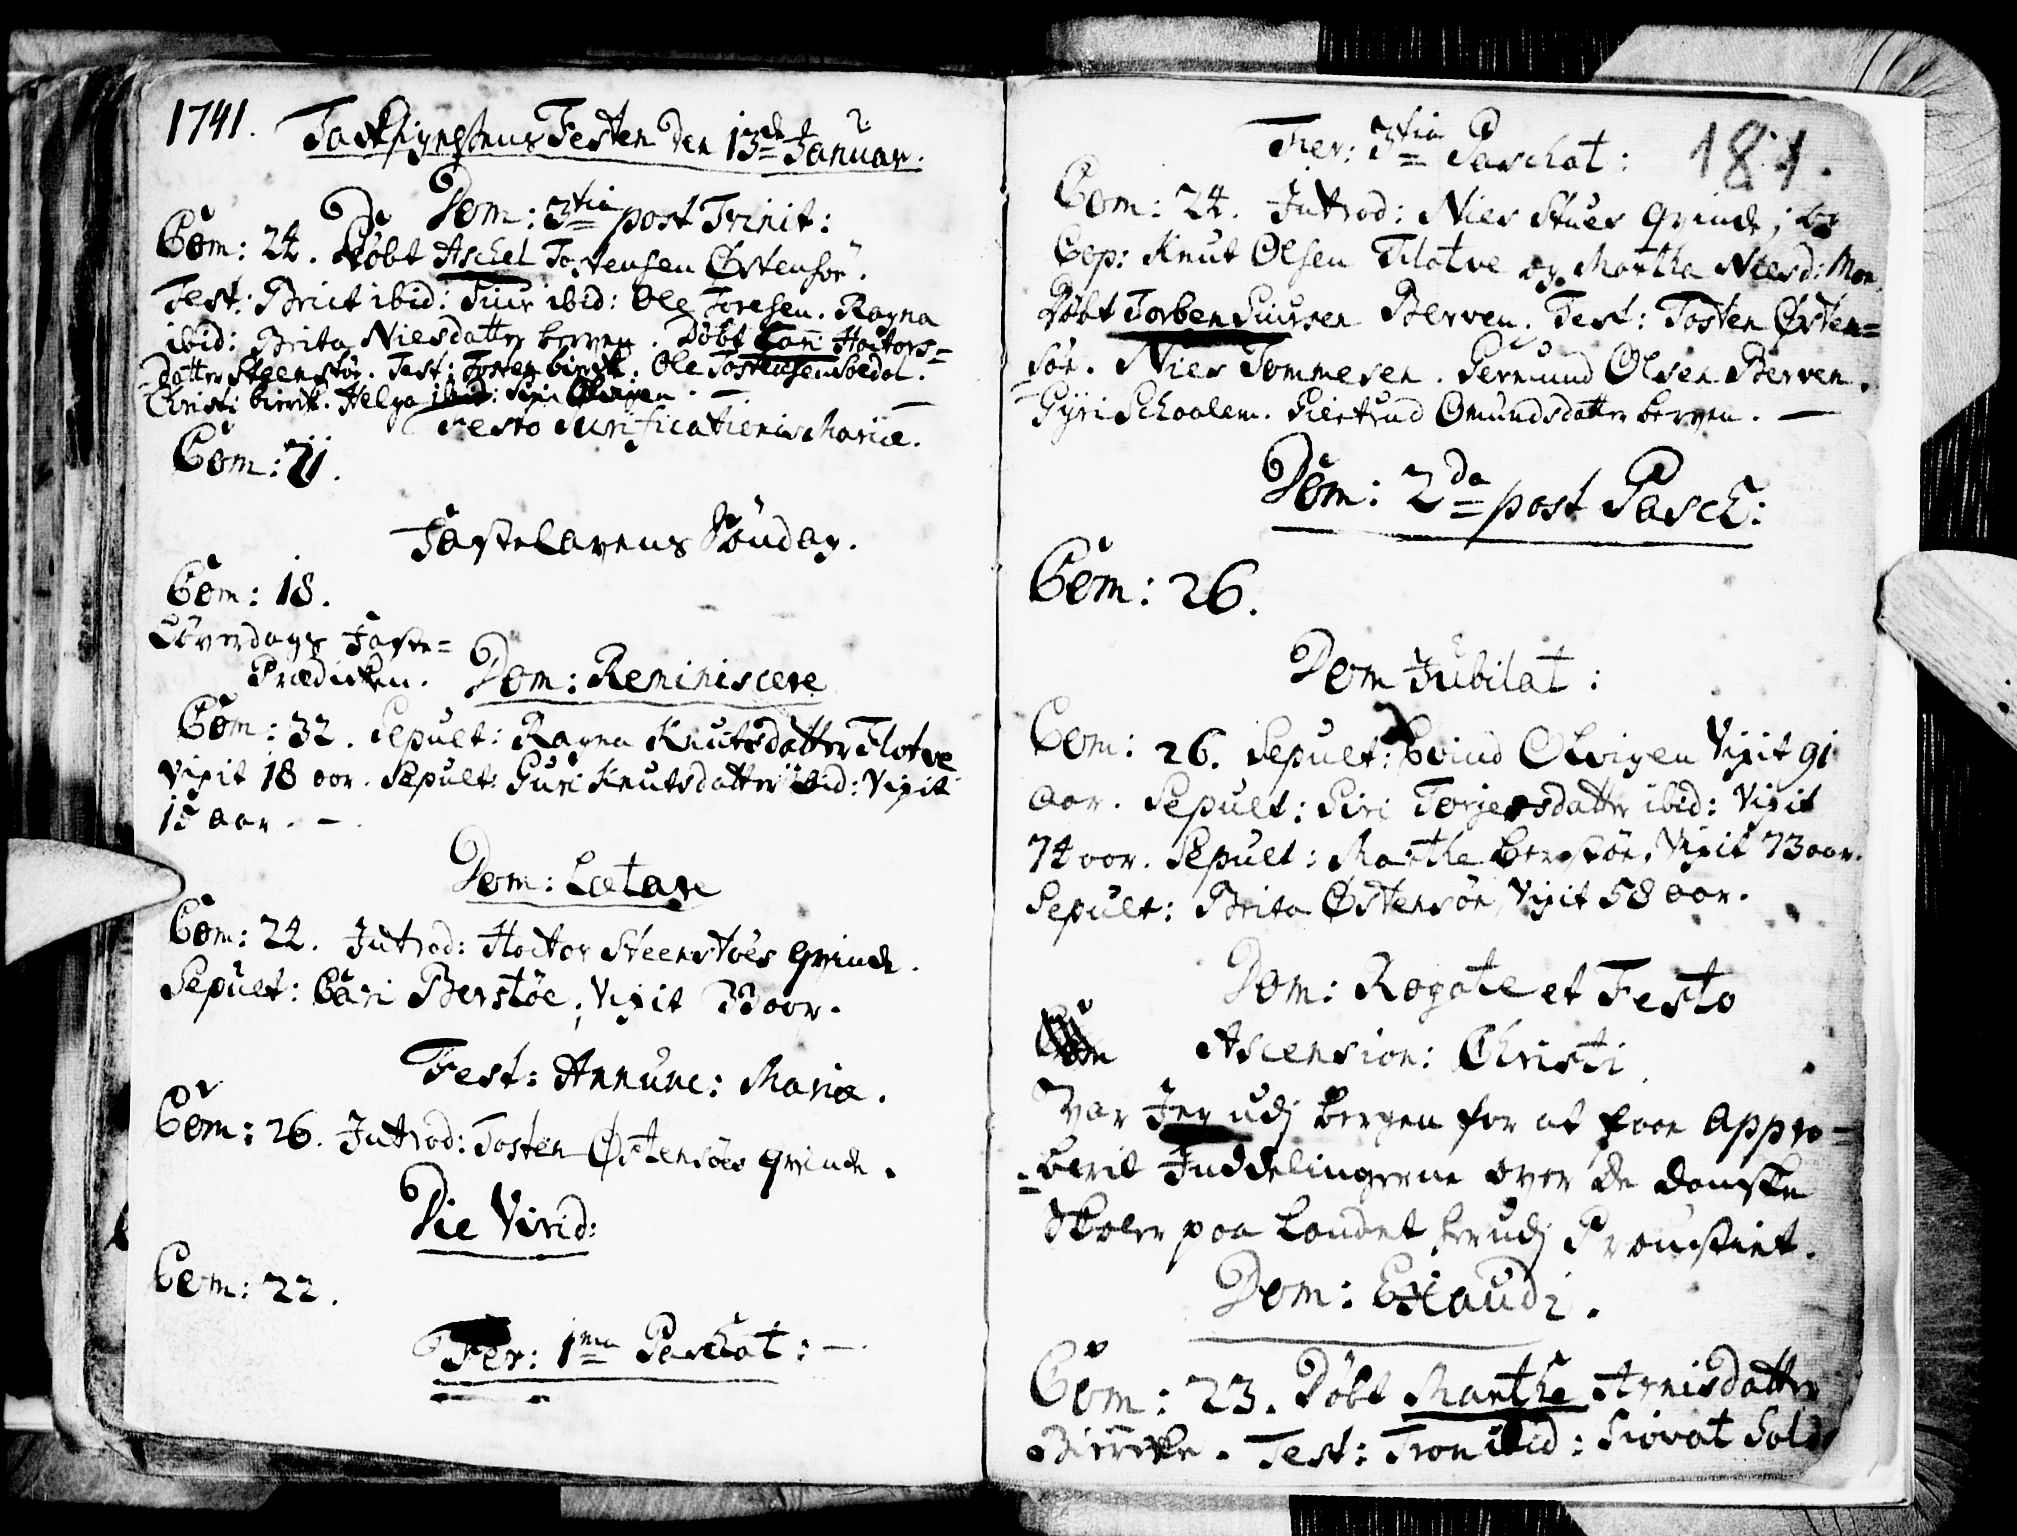 1741. Taksigelsens Festen den 13de Januar.
Dom: 3tia post Trinit:
Com: 24. Døbt Aschel Tostensen Østensøe.
Test: Brict ibid: Siur ibid: Ole Toresen. Ragna
ibid: Brita Niesdatter berven. Døbt Cari Hactors=
datter Steenstøe. Test: Tosten birck. Ole Tostensen Soldal.
Christi birck. Helga ibid: Siri Olvigen. —
Festo Purificationis Mariæ.
Com: 21.
Fastelavens Søndag.
Com: 18.
Løverdags Faste=
Prædicken. Dom: Reminiscere
Com: 32. Sepult: Ragna Knutsdatter Flotve
Vixit 18 aar. Sepult: Guri Knutsdatter ibid: Vixit
15 aar. —
Dom: Lætare
Com: 24. Introd: Hactor Steenstøes Qvinde.
Sepult: Cari Berstøe, Vixit 33 aar.
Fest: Annunc: Mariæ.
Com: 26. Introd: Tosten Østensøes Qvinde.
Die Virid:
Com: 22.
Fer: 1ma Paschat: —
Fer: 3tia Paschat: 181.
Com: 24. Introd: Nies Stues Qvinde;
Cop: Knut Olsen Flotve og Martha Niesd: Moe
Døbt Torben Siursen Berven. Test: Tosten Østen=
søe. Nies Tommesen. Germund Olsen Berven.
Gyri Schaalem. Giertrud Omundsdatter berven. —
Dom: 2da post Pasch:
Com: 26.
Dom Jubilat:
Com: 26. Sepult: Evind Olvigen Vixit 91
aar. Sepult: Siri Torgersdatter ibid: Vixit
74 aar. Sepult: Marthe berstøe, Vixit 73 aar.
Sepult: Brita Østensøe, Vixit 58 aar.
Dom: Rogate et Festo
Ascension: Christi.
Var Jeg udj bergen for at faae appro=
=berit Inddelingerne over de danske
Skoler paa Landet her udj Proustiet.
Dom: Exaudi.
Com: 23. Døbt Marthe Arnisdatter
Biercke. Test: Tron ibid: Siovat Sold